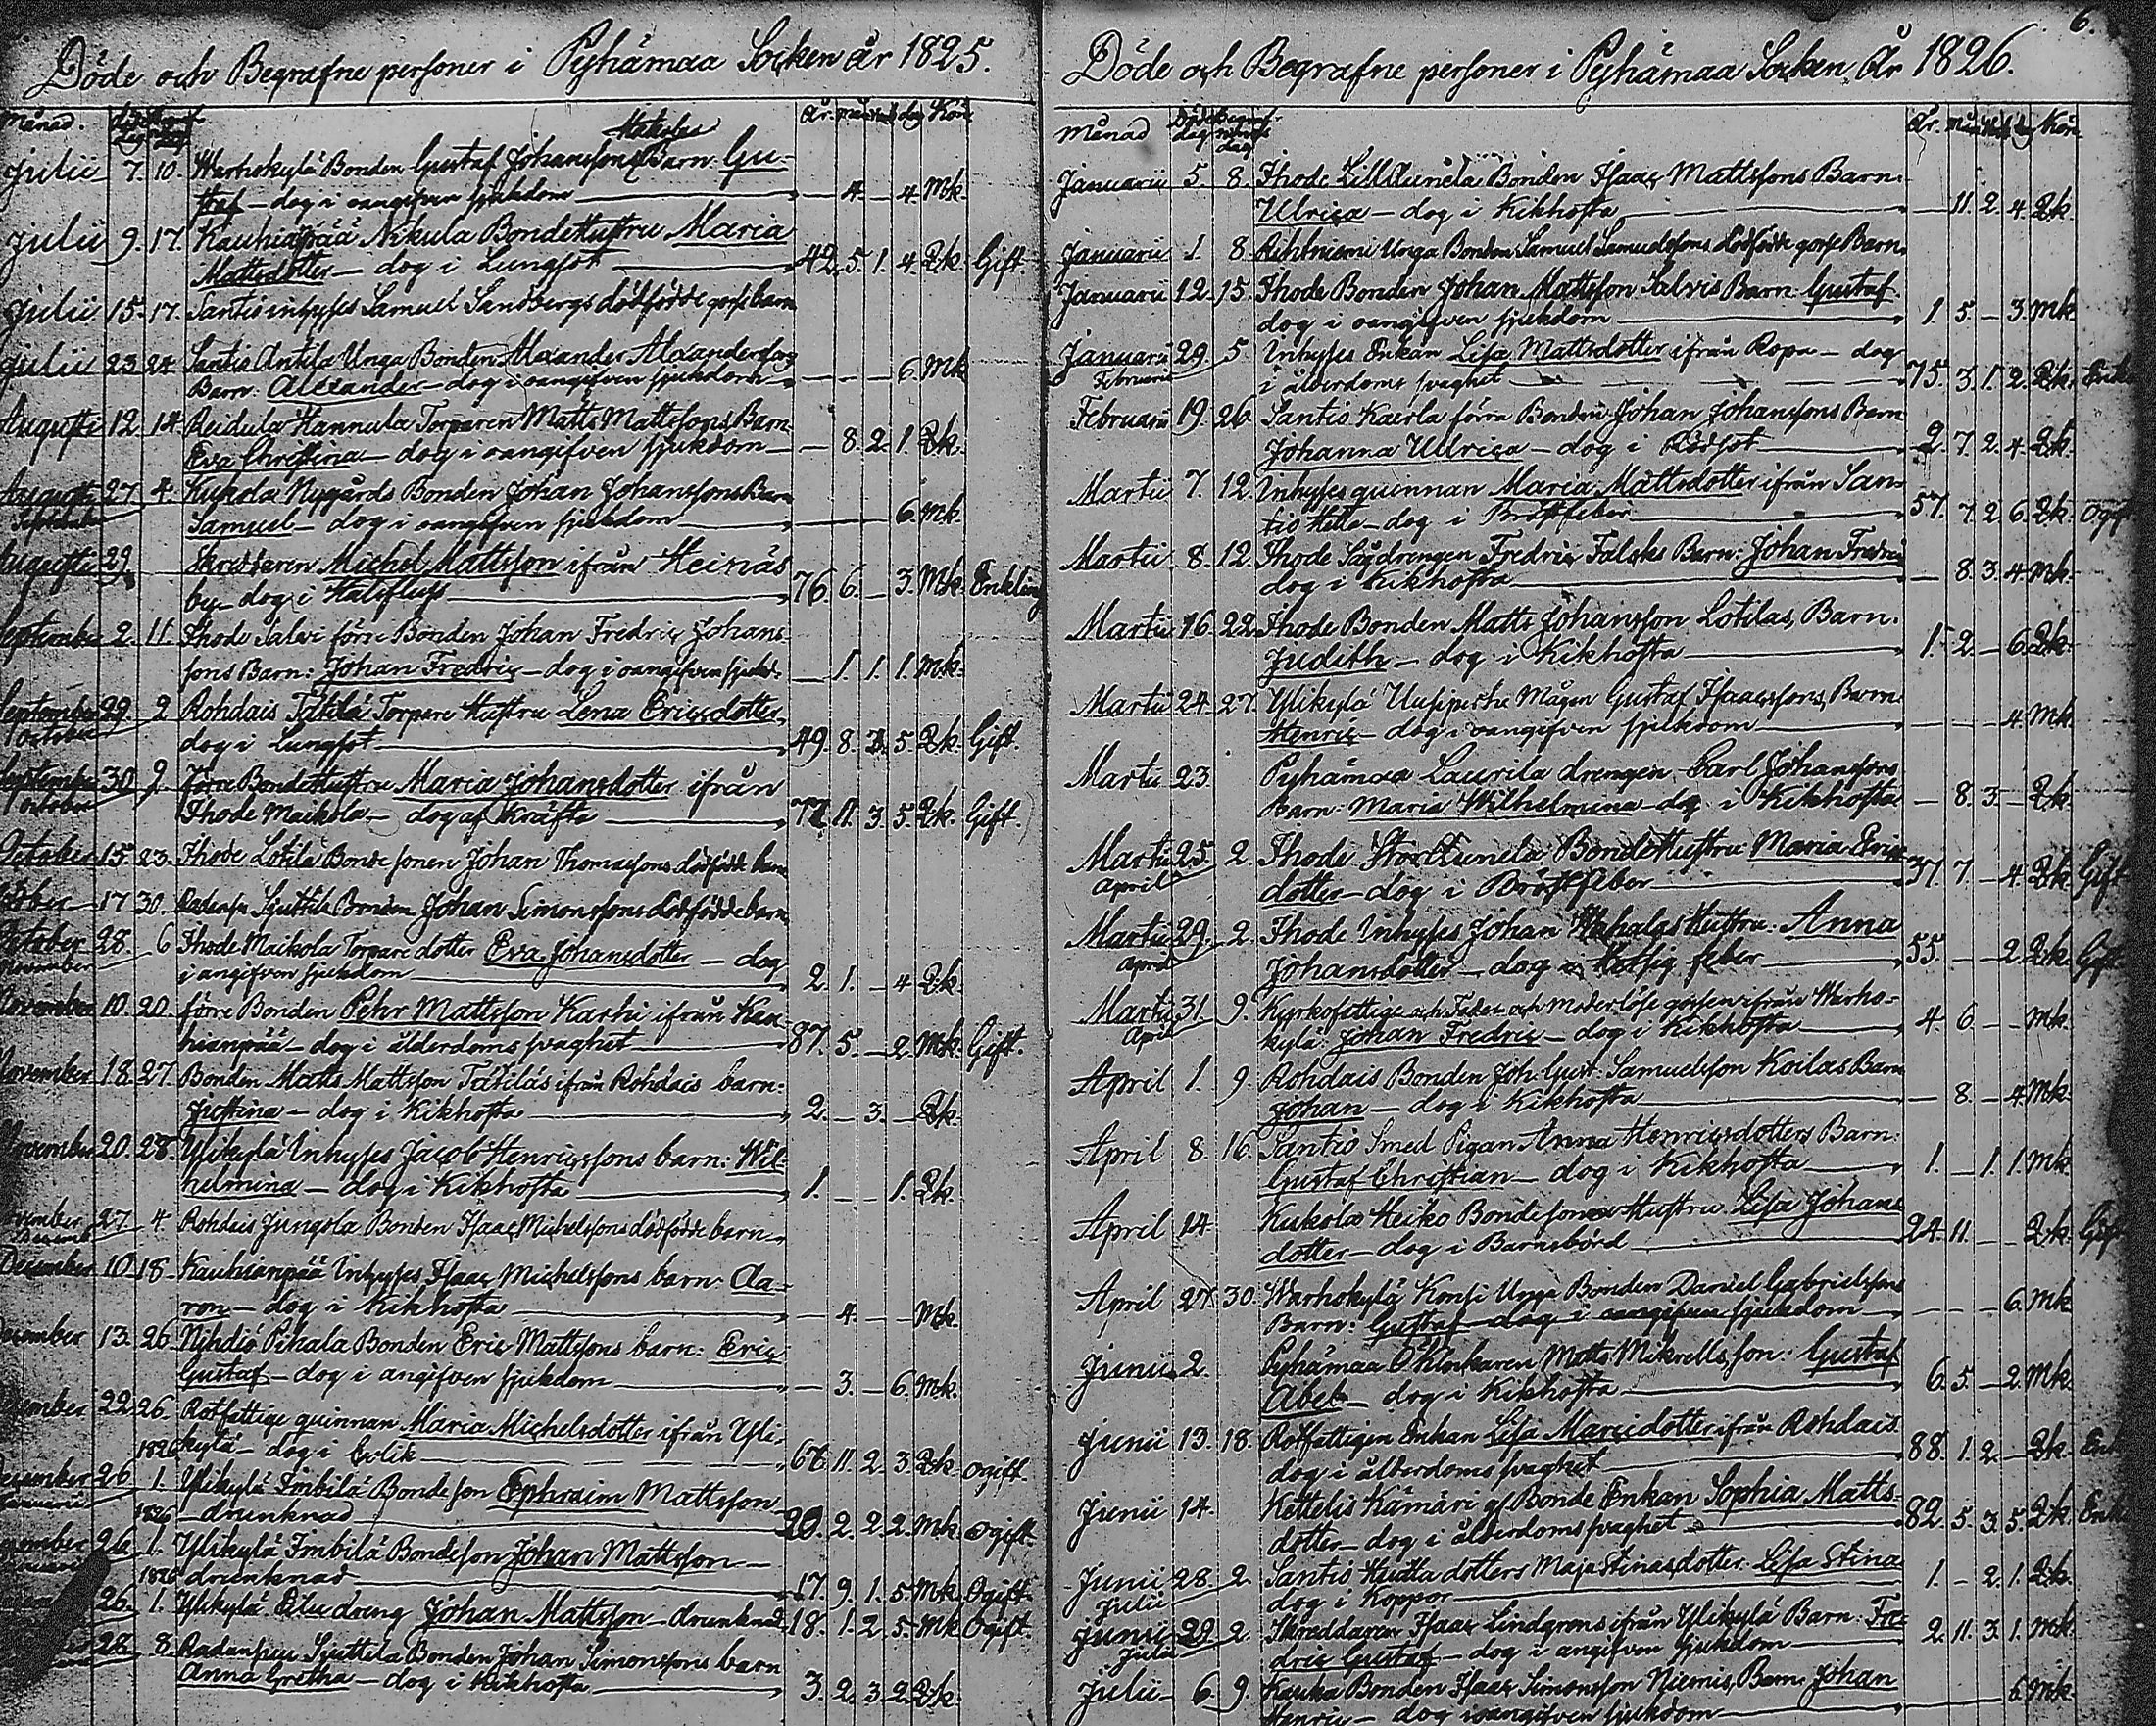 Döde och Begrafne personer i Pyhämaa Socken år 1825.
Månad. År. mån dag Kön
Makolas
Julii 7. 10. Warhokylä Bonden Gustaf Johanssons Barn: Gu-
staf – dog i oangifven sjukdom – 4. – 4. Mk.
Julii 9. 17. Kauhianpää Nikula Bonde Hustru Maria
Mattsdotter – dog i Lungsot 42. 5. 1. 4. Qk. Gift.
Julii 15. 17. Santio inhyses Samuel Sandbergs dödfödde gosse barn
Julii 23 24 Santio Antila Unga Bonden Alexander Alexandersons
Barn: Alexander – dog i oangifven sjukdom 6 Mk
Augusti 12. 14. Reidula Hannula Torparen Matts Mattsons Barn
Eva Christina – dog i oangifven sjukdom – 8. 2. 1. Qk.
Augusti 27. 4. Kukola Nygårds Bonden Johan Johanssons Barn
September Samuel – dog i oangifven sjukdom 6. Mk.
Augusti 29. Skreddaren Michel Mattsson ifrån Heinäs
by – dog i Halsfluss 76. 6. – 3. Mk. Enkling
September 2. 11. Ihode Salvi förre Bonden Johan Fredric Johans-
sons Barn: Johan Fredric – dog i oangifven sjukd. – 1. 1. 1. Mk.
September 29. 2 Rohdais Tätilä Torpare Hustru Lena Ericsdotter
October dog i Lungsot 49. 8. 3. 5. Qk. Gift.
September 30. 9. Förre Bonde Hustru Maria Johansdotter ifrån
October Ihode Maikola – dog af Kräfta 77. 11. 3. 5. Qk. Gift.
October 15. 23. Ihode Lotila Bonde sonen Johan Thomassons dödfödde barn
October 17. 30. Radansu Sjuttila Bonden Johan Simonssons dödfödde barn
October 28. 6 Ihode Maikola Torpare dotter Eva Johansdotter – dog
November i angifven sjukdom 2. 1. – 4. Qk.
November 10. 20. förre Bonden Pehr Mattsson Karhi ifrån Kau-
hianpää – dog i ålderdoms svaghet 87. 5. – 2. Mk. Gift.
November 18. 27. Bonden Matts Mattsson Tätiläs ifrån Rohdais barn:
Justina – dog i Kikhosta 2. – 3. – Qk.
November 20. 28. Ylikylä Inhyses Jacob Henricssons barn: Wil-
helmina – dog i Kikhosta 1. – – 1. Qk.
November 27. 4. Rohdais Jungola Bonden Isaac Michelssons dödfödde barn
December 10. 18. Kauhianpää Inhyses Isaac Michelssons barn: Aa-
ron – dog i Kikhosta – 4. – – Mk.
December 13. 26. Nihdiö Pihala Bonden Eric Mattsons barn: Eric
Gustaf – dog i angifven sjukdom – 3. – 6. Mk.
December 22. 26. Rotfattige quinnan Maria Michelsdotter ifrån Yli-
kylä – dog i 67. 11. 2. 3. Qk. ogift.
1826
December 26. 1. Ylikylä Imbilä Bonde son Ephraim Mattsson
Januarii drunknad 20. 2. 2. 2. Mk. Ogift.
1826
December 26. 1. Ylikylä Imbilä Bondeson Johan Mattsson –
drunknad 17. 9. 1. 5. Mk. Ogift.
1826
26. 1. Ylikylä Eilu dreng Johan Mattsson – drunknad 18. 1. 2. 5. Mk Ogift
28. 8. Radansuu Sjuttila Bonden Johan Simonssons barn
Anna Gretha – dog i Kikhosta 3. 2. 3. 2. Qk.
6.
Döde och Begrafne personer i Pyhämaa Socken, År 1826.
Månad Döds dag Begrafnings dag År. Mån dag Kön
Januarii 5. 8. Ihode Lilldunela Bonden Isaac Mattssons Barn:
Ulrica – dog i Kikhosta – 11. 2. 4. Qk.
Januarii 1. 8. Rihtniemi Unga Bonden Samuel Samuelssons dödfödde gosse Barn
Januarii 12. 15. Ihode Bonden Johan Mattsson Salvis Barn Gustaf
dog i oangifven sjukdom 1. 5. – 3. Mk.
Januarii 29. 5. Inhyses Enkan Lisa Mattsdotter ifrån Ropa – dog
Februarii i ålderdoms svaghet 75. 3. 1. 2. Qk. Enka
Februarii 19. 26. Santio Kaerla förra Bonden Johan Johanssons Barn
Johanna Ullrica – dog i Rödsot 2. 7. 2. 4. Qk.
Martii 7. 12. Inhyses quinnan Maria Mattsdotter ifrån San-
tio Hette – dog i Bröstfeber 57. 7. 2. 6. Qk. Ogift
Martii 8. 12. Ihode Sagdrengen Fredric Falcks Barn: Johan Fredric
dog i Kikhosta – 8. 3. 4. Mk.
Martii 16. 22. Ihode Bonden Matts Johansson Lotilas, Barn:
Judith – dog i Kikhosta 1. 2. – 6. Qk.
Martii 24. 27. Ylikylä Uusipirtti Mågen Gustaf Isaacssons, Barn
Henric – dog i oangifven sjukdom 4. Mk.
Martii 23. Pyhämaa Laurila drengen Carl Johanssons
barn: Maria Wilhelmina – dog i Kikhosta – 8. 3. – Qk.
Martii 25. 2. Ihode Stordunela Bonde Hustru Maria Erics
April dotter – dog i Bröstfeber 37. 7. – 4. Qk. Gift
Martii 29. 2. Ihode Inhyses Johan Hustru: Anna
April Johansdotter – dog i Hetsig feber 55. – – 2. Qk. Gift
Martii 31. 9. Kyrkofattige och Fader och Moderlöse gossen ifrån Warho-
April kylä: Johan Fredric – dog i Kikhosta 4. 6. – – Mk.
April 1. 9. Rohdais Bonden Joh. Gust. Samuelsson Koilas Barn
Johan – dog i Kikhosta – 8. – 4. Mk.
April 8. 16. Santio Smed Pigan Anna Henricsdotters Barn:
Gustaf Christian – dog i Kikhosta 1. – 1. 1. Mk
April 14. Kukola Heiko Bondesonens Hustru Lisa Johans
dotter – dog i Barnsbörd 24. 11. – – Qk. Gift
April 27. 30. Warhokylä Konsi Unga Bonden Daniel Gabrielssons
Barn: Gustaf – dog i oangifven sjukdom – – – 6. Mk
Junii 2. Pyhämaa Klockaren Matts Mikrells son: Gustaf
Abel – dog i Kikhosta 6. 5. – 2. Mk
Junii 13. 18. Rotfattigen Enkan Lisa Marcidotter ifrån Rohdais
dog i ålderdoms svaghet 88. 1. 2. – Qk. Enka
Junii 14. Kettelis Kämäri Bonde Enkan Sophia Matts-
dotter – dog i ålderdoms svaghet 82. 5. 3. 5. Qk. Enka
Junii 28. 2. Santio dotters Maja Stinas dotter: Lisa Stina
Julii dog i Koppor 1. – 2. 1. Qk.
Junii 29. 2. Skreddaren Isaac Lindgrens ifrån Ylikylä Barn: Fre-
Julii dric Gustaf – dog i angifven sjukdom 2. 11. 3. 1. Mk.
Julii – 6. 9. Kauka Bonden Isaac Simonsson Niemis, Barn: Johan
Henric – dog i oangifven sjukdom 6. Mk.